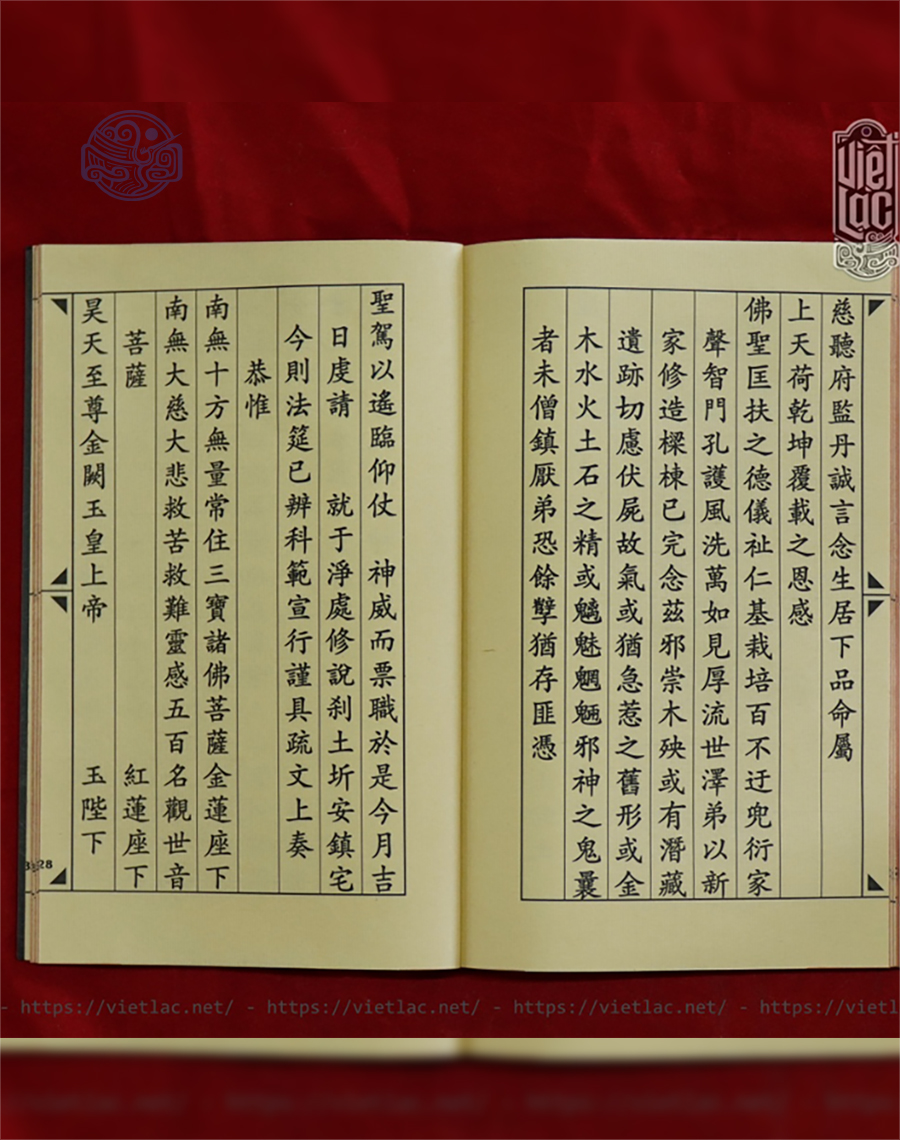 Việt Lạc
慈聽府監丹誠言念生居下品命屬
上天荷乾坤覆載之恩感
佛聖匡扶之德儀祉仁基栽培百不迂兜衍家
聲智門孔護風洗萬如見厚流世澤弟以新
家修造樑棟已完念茲邪崇木殃或有潛藏
遺跡切慮伏屍故氣或猶急惹之舊形或金
木水火土石之精或魑魅魍魎邪神之鬼曩
者未僧鎮厭弟恐餘孽猶存匪憑
聖駕以遙臨仰仗 神威而票職於是今月吉
日虔請 就于淨處修說刹土圻安鎮宅
今則法筵已辨科範宣行謹具疏文上奏
恭惟
南無十方無量常住三寶諸佛菩薩金蓮座下
南無大慈大悲救苦救難靈感五百名觀世音
菩薩 紅蓮座下
昊天至尊金闕玉皇上帝 玉陛下
28
- https://vietlac.net/ - https://vietlac.net/ - https://vietlac.net/ - https://vietl